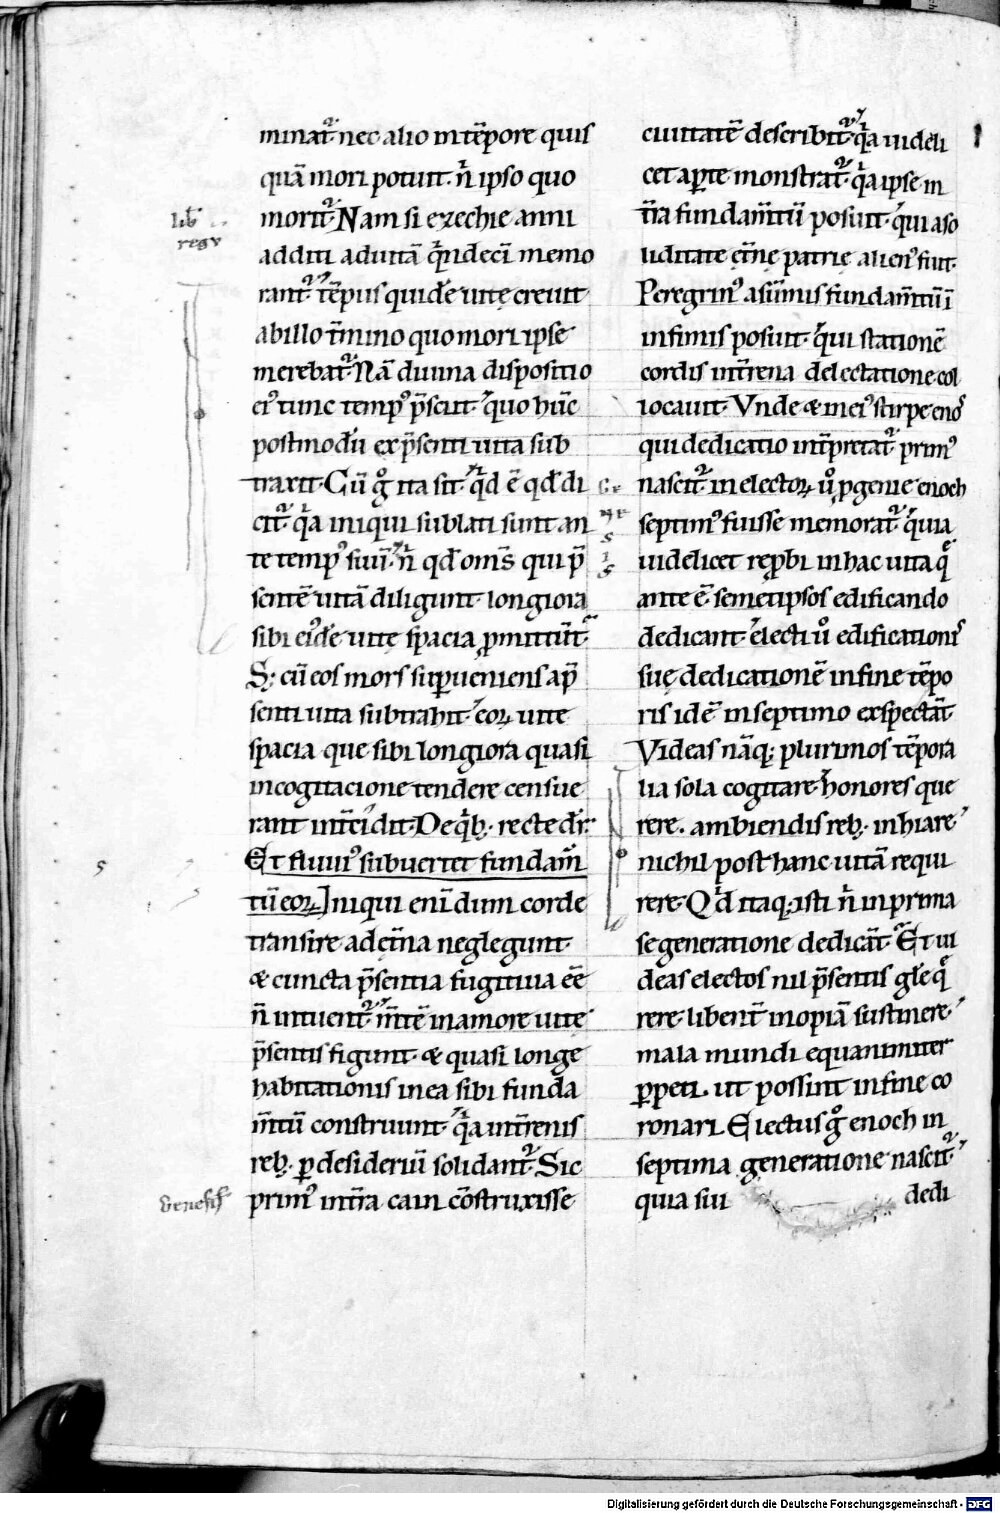 minat᷑· nec alio in tēpore quis
quā mori potuit· n̄ ipso quo
lib̄
regū
morit᷑· Nam si ezechie anni
additi ad uitā q̇ndecī memo
rant᷑· tēpus quidē uitę creuit
ab illo t̄mino quo mori ipse
merebat᷑· Nā diuina dispositio
ei᷒ tunc temp᷒ p̄sciit· quo hūc
postmodū ex p̄senti uita sub
traxit· Cū g̊ ita sit· q̇d ē qd̄ di
cit᷑· q̇a iniqui sublati sunt an
te temp᷒ suū· n̄ qd̄ om̄s qui p̄
sentē uitā diligunt· longiora
sibi ei᷒dē uitę spacia ꝓmittūt·
S; cū eos mors sup̱ueniens a p̄
senti uita subtrahit· eoꝝ uite
spacia que sibi longiora quasi
in cogitacione tendere consue
rant int̄cidit· De q̇b; recte dr̄·
Et fluui᷒ subuertet fundam̄
tū eoꝝ] Iniqui enī dum corde
transire ad et̄na neglegunt·
& cuncta p̄sentia fugitiua eē
n̄ intuent᷑· m̄tē in amore uite
p̄sentis figunt· & quasi longe
habitationis in ea sibi funda
m̄tū construunt· q̇a in t̄renis
reb; ꝑ desideriū solidant᷑· Sic
Genesis
prim᷒ in t̄ra cain cōstruxisse
ciuitatē describit᷑· q̇a uideli
cet aꝑte monstrat᷑· q̇a ipse in
t̄ra fundam̄tū posuit· qui a so
liditate et̄nę patrię alien᷒ fuit·
Peregrin᷒ a sūmis fundam̄tū ī
infimis posuit· qui stationē
cordis in t̄rena delectatione col
locauit· Vnde & in ei᷒ stirpe enoch
qui dedicatio int̄pretat᷑· prim᷒
Ge
ne
s
i
s
nascit᷑· in electoꝝ u̇ ꝓgenie enoch
septim᷒ fuisse memorat᷑· quia
uidelicet reꝓbi in hac uita q̄
ante ē· semetipsos edificando
dedicant· electi u̇ edificationis
suę dedicationē in fine tēpo
ris idē in septimo exspectāt·
Videas nāq; plurimos tēpora
lia sola cogitare· honores que
rere· ambiendis reb; inhiare·
nichil post hanc uitā requi
rere· Q̇d itaq; isti n̄ in prima
se generatione dedicāt· Et ui
deas electos nil p̄sentis glē q̄
rere· libent̄ inopiā sustinere·
mala mundi equanimiter
ꝑpeti· ut possint in fine co
ronari· Electus g̊ enoch in
septima generatione nascit᷑·
quia sui dedi
Digitalisierung gefördert durch die Deutsche Forschungsgemeinschaft - DFG